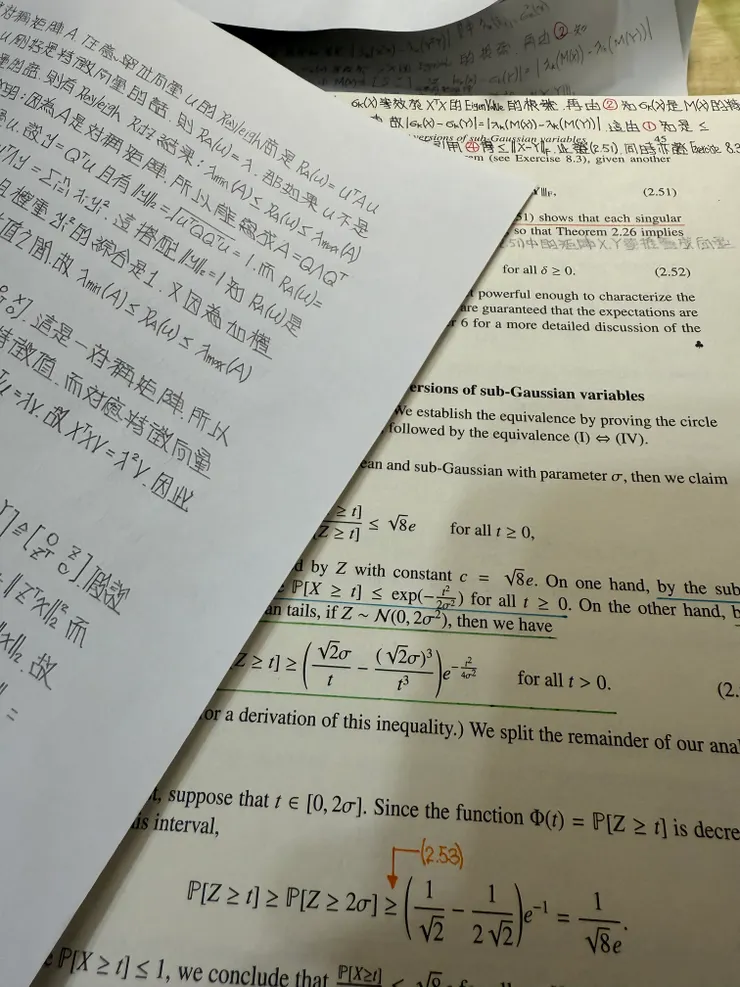 對稱矩陣A,任意單位向量u的Rayleigh商是R_A(u)=uᵀAu
剛好是特徵向量的話,則R_A(u)=λ.那如果u不是
的話,則有Rayleigh Ritz結果:λmin(A)≤R_A(u)≤λmax(A)
明:因為A是對稱矩陣,所以能寫成A=QΛQᵀ
u.故y=Qᵀu且有‖y‖₂=√uᵀQQᵀu=1.而R_A(u)=
yᵀΛy=Σᵢ₌₁ⁿλᵢyᵢ².這搭配‖y‖₂=1知R_A(u)是
且權重yᵢ²的綜合是1.又因為加權
值之間.故λmin(A)≤R_A(u)≤λmax(A)
這是一對稱矩陣.所以
特徵值.而對應特徵向量
ᵀu=λv.故XᵀXv=λ²v.因此
]≜[0 Z
Zᵀ 0].假設
‖ZᵀX‖₂² 而
‖₂.故
σₖ(X)等效於XᵀX的Eigenvalue的根號.再由②知σₖ(X)是M(X)的特
故|σₖ(X)-σₖ(Y)|=|λₖ(M(X))-λₖ(M(Y))|.這由①知是≤
④得≤‖X-Y‖F.此證(2.51)同時亦證Exercise 8.3
versions of sub-Gaussian variables 45
m (see Exercise 8.3), given another
‖F, (2.51)
51) shows that each singular
so that Theorem 2.26 implies
51)中的矩陣X,Y
for all δ ≥ 0. (2.52)
t powerful enough to characterize the
are guaranteed that the expectations are
r 6 for a more detailed discussion of the
♣
ersions of sub-Gaussian variables
We establish the equivalence by proving the circle
followed by the equivalence (I) ⇔ (IV).
ean and sub-Gaussian with parameter σ, then we claim
≥ t]
Z ≥ t] ≤ √8e for all t ≥ 0,
d by Z with constant c = √8e. On one hand, by the sub
ℙ[X ≥ t] ≤ exp(−t²/2σ²) for all t ≥ 0. On the other hand, b
an tails, if Z ∼ N(0, 2σ²), then we have
Z ≥ t] ≥ (√2σ/t − (√2σ)³/t³) e^{−t²/4σ²} for all t > 0. (2.
or a derivation of this inequality.) We split the remainder of our anal
t, suppose that t ∈ [0, 2σ]. Since the function Φ(t) = ℙ[Z ≥ t] is decre
is interval,
(2.53)
ℙ[Z ≥ t] ≥ ℙ[Z ≥ 2σ] ≥ (1/√2 − 1/2√2) e⁻¹ = 1/√8e.
e ℙ[X ≥ t] ≤ 1, we conclude that ℙ[X≥t]